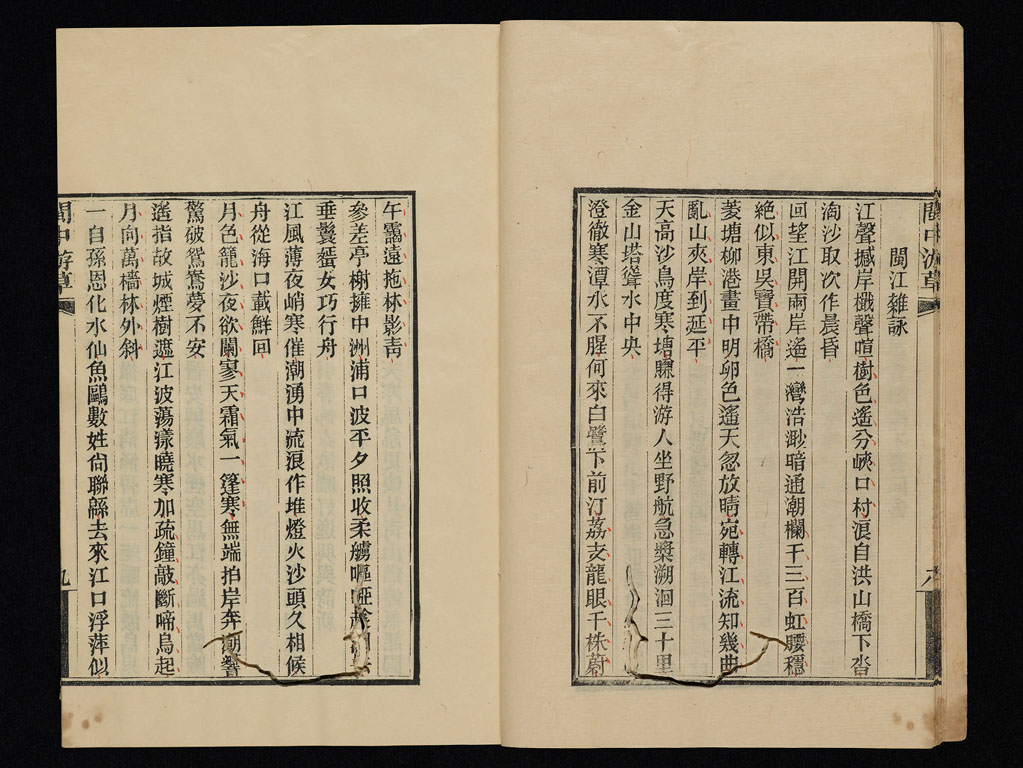 閩中游草
八
閩江雜詠
江聲撼岸櫼聲喧樹色遙分峽口村浪自洪山橋下沓
淘沙取次作晨昏
回望江開兩岸遙一灣浩渺暗通潮欄干三百虹腰穩
絶似東吳寶帶橋
菱塘柳港畫中明卵色遙天忽放晴宛轉江流知幾曲
亂山夾岸到延平
天高沙鳥度寒塘賺得游人坐野航急槳溯洄三十里
金山塔聳水中央
澄徹寒潭水不腥何來白鷺下前汀荔支龍眼千株蔚
午靄遠拖林影靑
參差亭榭擁中洲浦口波平夕照收柔艣嘔啞
垂鬟蜑女巧行舟
江風薄夜峭寒催潮湧中流浪作堆燈火沙頭久相候
舟從海口載鮮回
月色籠沙夜欲闌寥天霜氣一篷寒無端拍岸奔潮響
驚破鴛鴦夢不安
遙指故城煙樹遮江波蕩漾曉寒加疏鐘敲斷啼烏起
月向萬檣林外斜
一自孫恩化水仙魚鷗數姓尙聯緜去來江口浮萍似
閩中游草
九